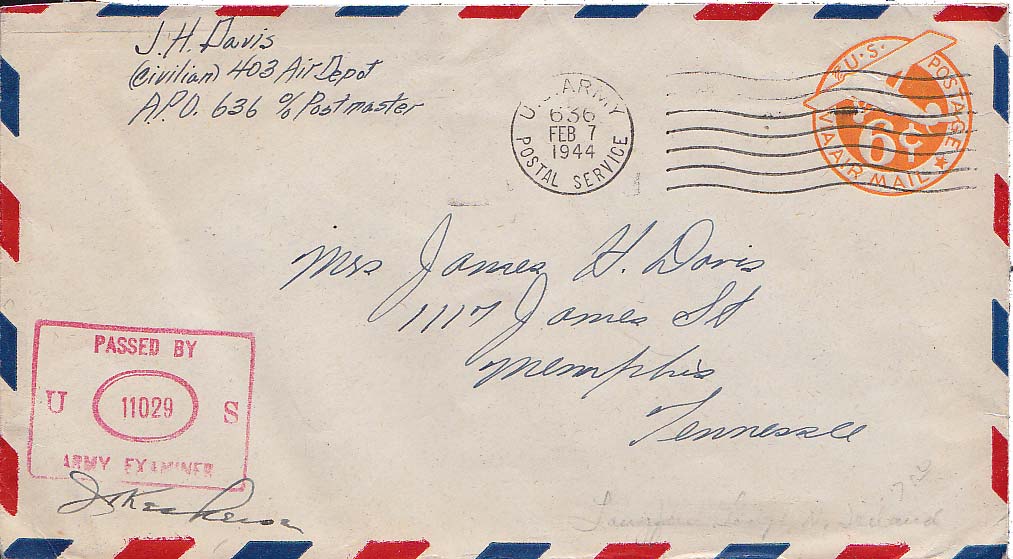 J. H. Davis
(Civilian) 403 Air Depot
A.P.O. 636 c/o Postmaster
U.S. ARMY
636
FEB 7
1944
POSTAL SERVICE
U.S. POSTAGE
6¢
VIA AIR MAIL
Mrs James H. Davis
1117 James St
Memphis
Tennessee
PASSED BY
U 11029 S
ARMY EXAMINER